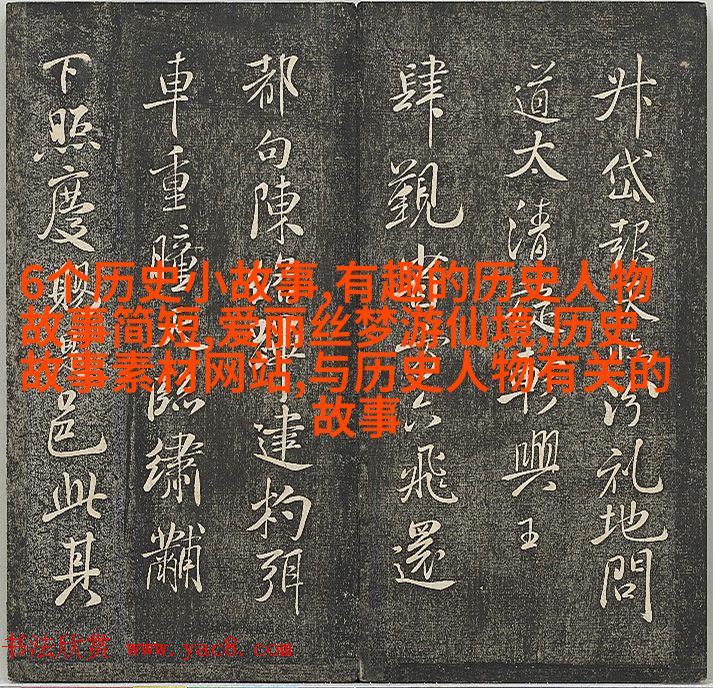 升岱報汾礼地問
道太清興王
肆觀飛還
都句陳建杓弭
車重瞳臨繡黼
下照慶賜邑此其
6个历史小故事,有趣的历史人物
故事简短,爱丽丝梦游仙境,历史
故事素材网站,与历史人物有关的
故事
书法欣赏 www.yac8.com